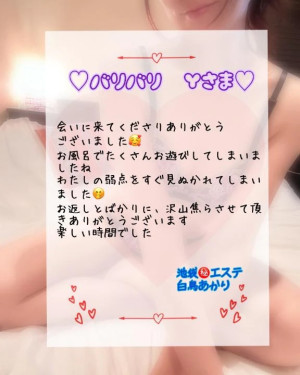 ♡バリバリ Yさま♡
会いに来てくださりありがとう
ございました🥰
お風呂でたくさんお遊びしてしまいま
したね
わたしの弱点をすぐ見ぬかれてしまい
ました🤭
お返しとばかりに、沢山焦らさせて頂
きありがとうございます
楽しい時間でした
池袋㊙エステ
白鳥あかり